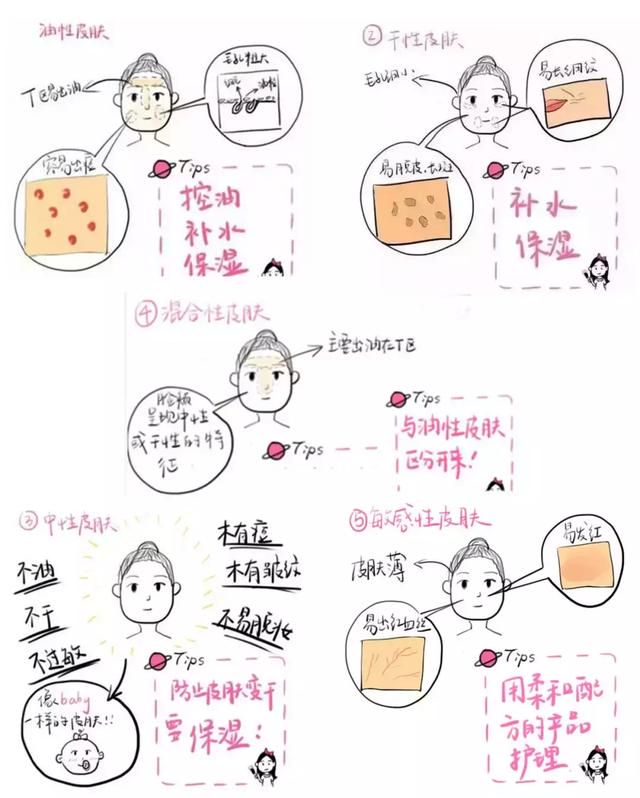 油性皮肤
T区易出油
毛孔粗大
毛孔
油脂
容易出痘
Tips
控油
补水
保湿
②干性皮肤
毛孔细小
易长细纹
易脱皮、长斑
Tips
补水
保湿
④混合性皮肤
主要出油在T区
脸颊
呈现中性
或干性的特
征
Tips
Tips
与油性皮肤
区分开来!
③中性皮肤
不油
不干
不过敏
木有痘
木有皱纹
不易脱妆
像baby
一样的皮肤!!
Tips
防止皮肤变干
要保湿!
⑤敏感性皮肤
皮肤薄
易发红
易出红血丝
Tips
用柔和配
方的产品
护理